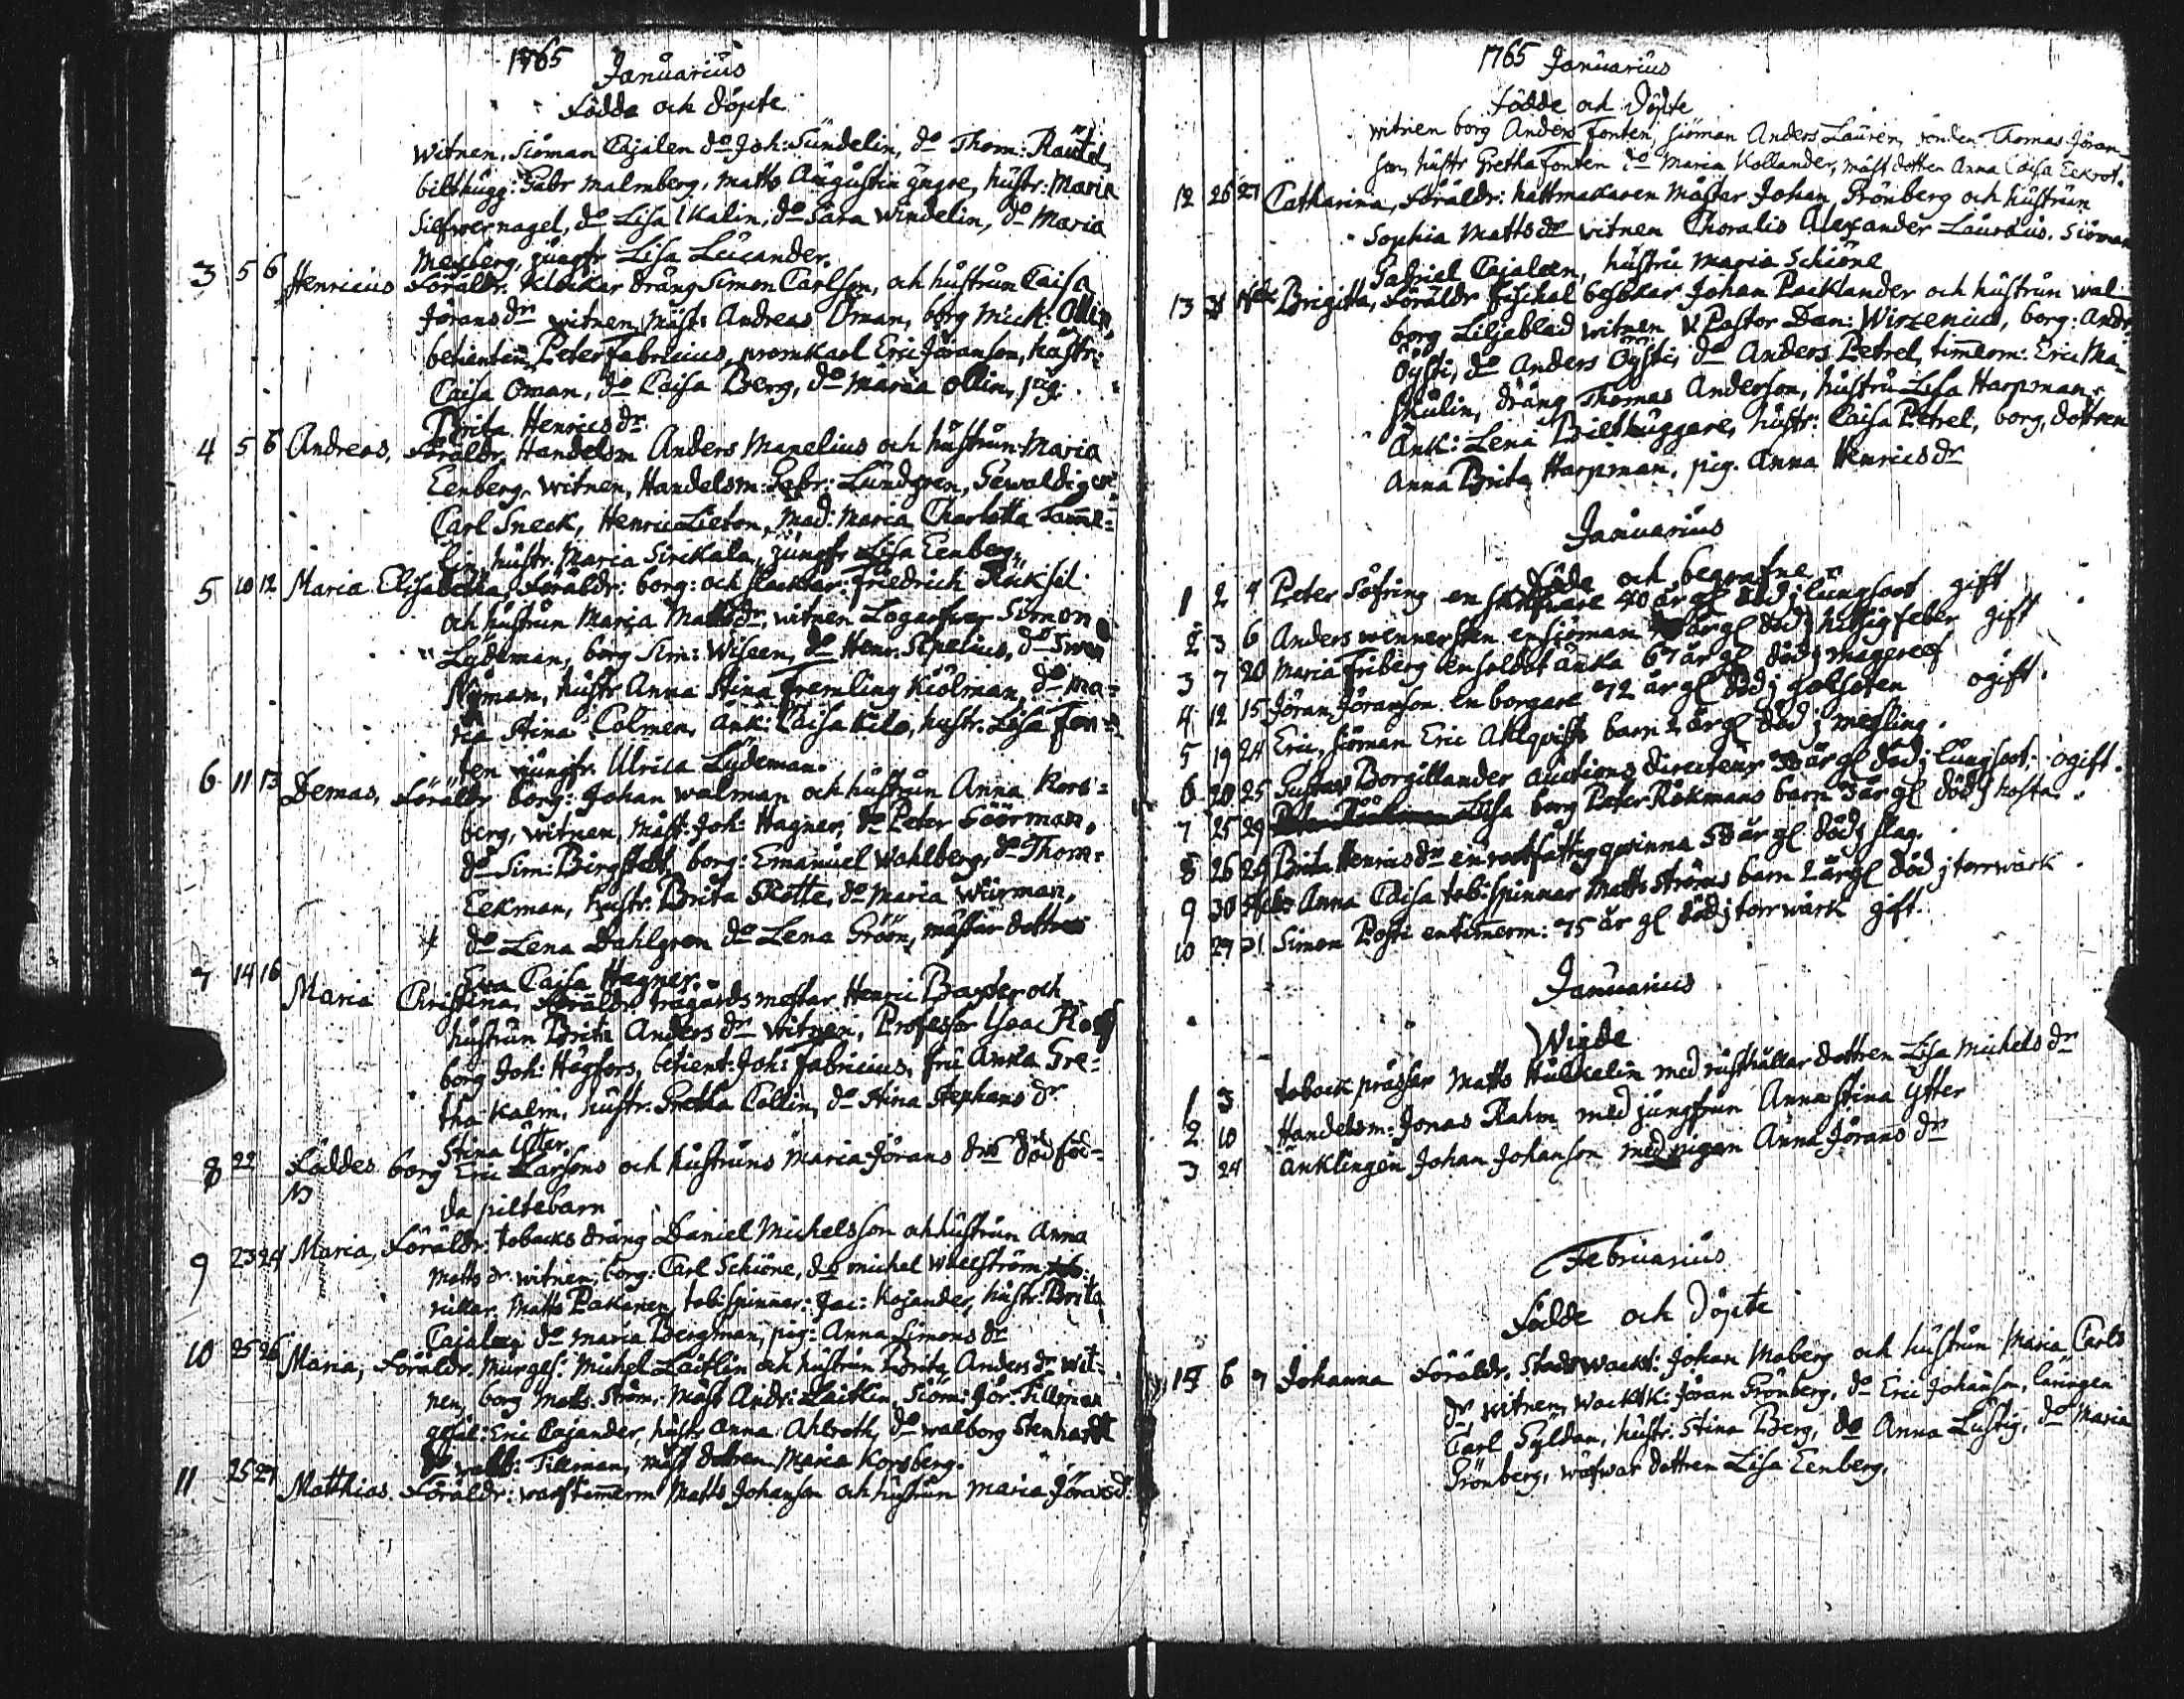 1765
Januarius
Födde och döpte
witnen, Siöman Cajalen do Joh: Sundelin, do Thom:
bilthugg: Gabr Malmberg, Matts Augustin yngre, hustr: Maria
Silfwernagel, do Lisa Kalin, do Sara Windelin, do Maria
Meyberg, jungfr Lisa Lucander.
3 5 6 Henricus Föräldr. Klockar dräng Simon Carlson, och hustrun Caisa
Jöransdr witnen, mäst: Andreas Öman, borg Mich: Ollin,
betienten Peter Fabricius, promkarl Eric Jöranson, hustr:
Caisa Öman, do Caisa Berg, do Maria Ollin, pig:
Brita Henricsdr
4 5 6 Andreas, Föräldr. Handelsm Anders Manelius och hustrun Maria
Eenberg. witnen, Handelsm: Gabr: Lundgren, Gewaldiger
Carl Sneck, Henric Lieton, Mad: Maria Charlotta Tamme=
lin, hustr. Maria Sirikala, jungfr Lisa Eenberg.
5 10 12 Maria Elisabetha, Föräldr: borg: och slacktar: Friedrich
och hustrun Maria Mattsdr, witnen Simon
Lydeman, borg Sim: Wiseen, do Henr. Sipelius, do Swen
Nyman, hustr Anna Stina Fremling Kiölman, do Ma=
ria Stina Colmen, änk: Caisa Kilo, hustr. Lisa Fon=
ten jungfr. Ulrica Lydeman.
6 11 13 Demas, Föräldr borg: Johan Walman och hustrun Anna Kors=
berg, witnen, mäst: Joh: Hagner, do Peter Söörman,
do Sim: Bergstedt, borg: Emanuel Wahlberg, do Thom:
Eekman, hustr. Brita Skotte, do Maria Wurman,
do Lena Dahlgren do Lena Gröön, mästar dottren
Ewa Caisa Hagner.
7 14 16 Maria Christina, Föräldr. trägårdsmestar Henric Baxter och
hustrun Brita Andersdr witnen, Professor Isac
borg Joh: Högfors, betient: Joh: Fabricius, fru Anna Gre=
tha Kalm, hustr. Gretha Collin, do Stina Stephansdr
Stina Ytter.
8 22 Föddes borg Eric Larsons och hustruns Maria Jörans drs dödföd=
da piltebarn
9 23 24 Maria, Föräldr. tobacks dräng Daniel Michelsson och hustrun Anna
Mattsdr. witnen, borg: Carl Schiöne, do Michel Wallström
rullar. Matts Pakarien, tob: spinnar: Jac: Kojander, hustr: Brita
Cajalen do Maria Bergman, pig: Anna Simonsdr
10 25 26 Maria, Föräldr. murges: Michel Laitlin och hustrun Brita Andersdr wit-
nen, borg Matts Ström, mäst Andr: Laitlin, siöm: Jör: Tillman
gesäl: Eric Cajander, hustr Anna Ahlroth, do Walborg Stenhardt
Tillman, mäst dottren Maria Korsberg.
11 25 27 Matthias Föräldr: warfstimerm Matts Johanson och hustrun Maria Jöransd.
1765 Januarius
Födde och Döpte
witnen borg Anders Fonten, siöman Anders Lauren, Thomas Jöran
son, hustr Gretha Fonten do Maria Kollander, mäst dotter Anna Caisa Eckrot.
12 26 27 Catharina, Föräldr: hattmakaren Mästar Johan Grönberg och hustrun
Sophia Mattsdr witnen Choralis Alexander Lauraus. Siöman
Gabriel Cajaleen, hustru Maria Schiöne
13 31 Brigitta, Föräldr fischal besökar Johan Packlander och hustrun Wal-
borg Liljeblad witnen V Pastor Dan: Wirzenius, borg: Andr.
Öysti, do Anders Öysti, do Anders Petrel, timerm: Eric Ma-
skulin, dräng Thomas Anderson, hustru Lisa Harpman,
Änk: Lena Bilthuggare, hustr: Caisa Petrel, borg. dottren
Anna Brita Harpman, pig. Anna Henricsdr
Januarius
Döde och begrafne
1 2 4 Peter Söfring en 40 år gl död j lungsoot gift
2 3 6 Anders Wennersten en siöman år gl död j hitsigfeber gift
3 7 20 Maria Friberg en soldat änka 67 år gl död j magerref
4 12 15 Jöran Jöranson en borgare 72 år gl död j golsoten ogift.
5 19 24 Eric, siöman Eric Ahlqvists barn 2 år gl död j mesling.
6 20 25 Gustav Borgillander auctions directeur 38 år gl död j lungsoot, ogift.
7 25 29 Lisa borg Peter Rökmans barn 3 år gl död j hosta.
8 26 29 Brita Henricsdr en rootfattig qwinna 58 år gl död j slag.
9 30 Anna Caisa tob: spinnar Matts Ströms barn 2 år gl död j torrwärk
10 27 31 Simon Posti en timerm: 75 år gl död j torrwärk gift.
Januarius
Wigde
1 3 toback prässar Matts Hulkalin med rusthållar dottren Lisa Michelsdr
2 10 Handelsm: Jonas Rahm med jungfrun Anna Stina Ytter
3 24 änklingen Johan Johanson med pigan Anna Jöransdr
Februarius
Födde och Döpte
14 6 9 Johanna Föräldr. Stadswackt: Johan Moberg och hustrun Maria Carls
dr witnen, wacktk: Jöran Grönberg, do Eric Johanson, läringen
Carl Syldan, hustr. Stina Berg, do Anna Lustig, do Maria
Grönberg, wäfwar dottren Lisa Eenberg.